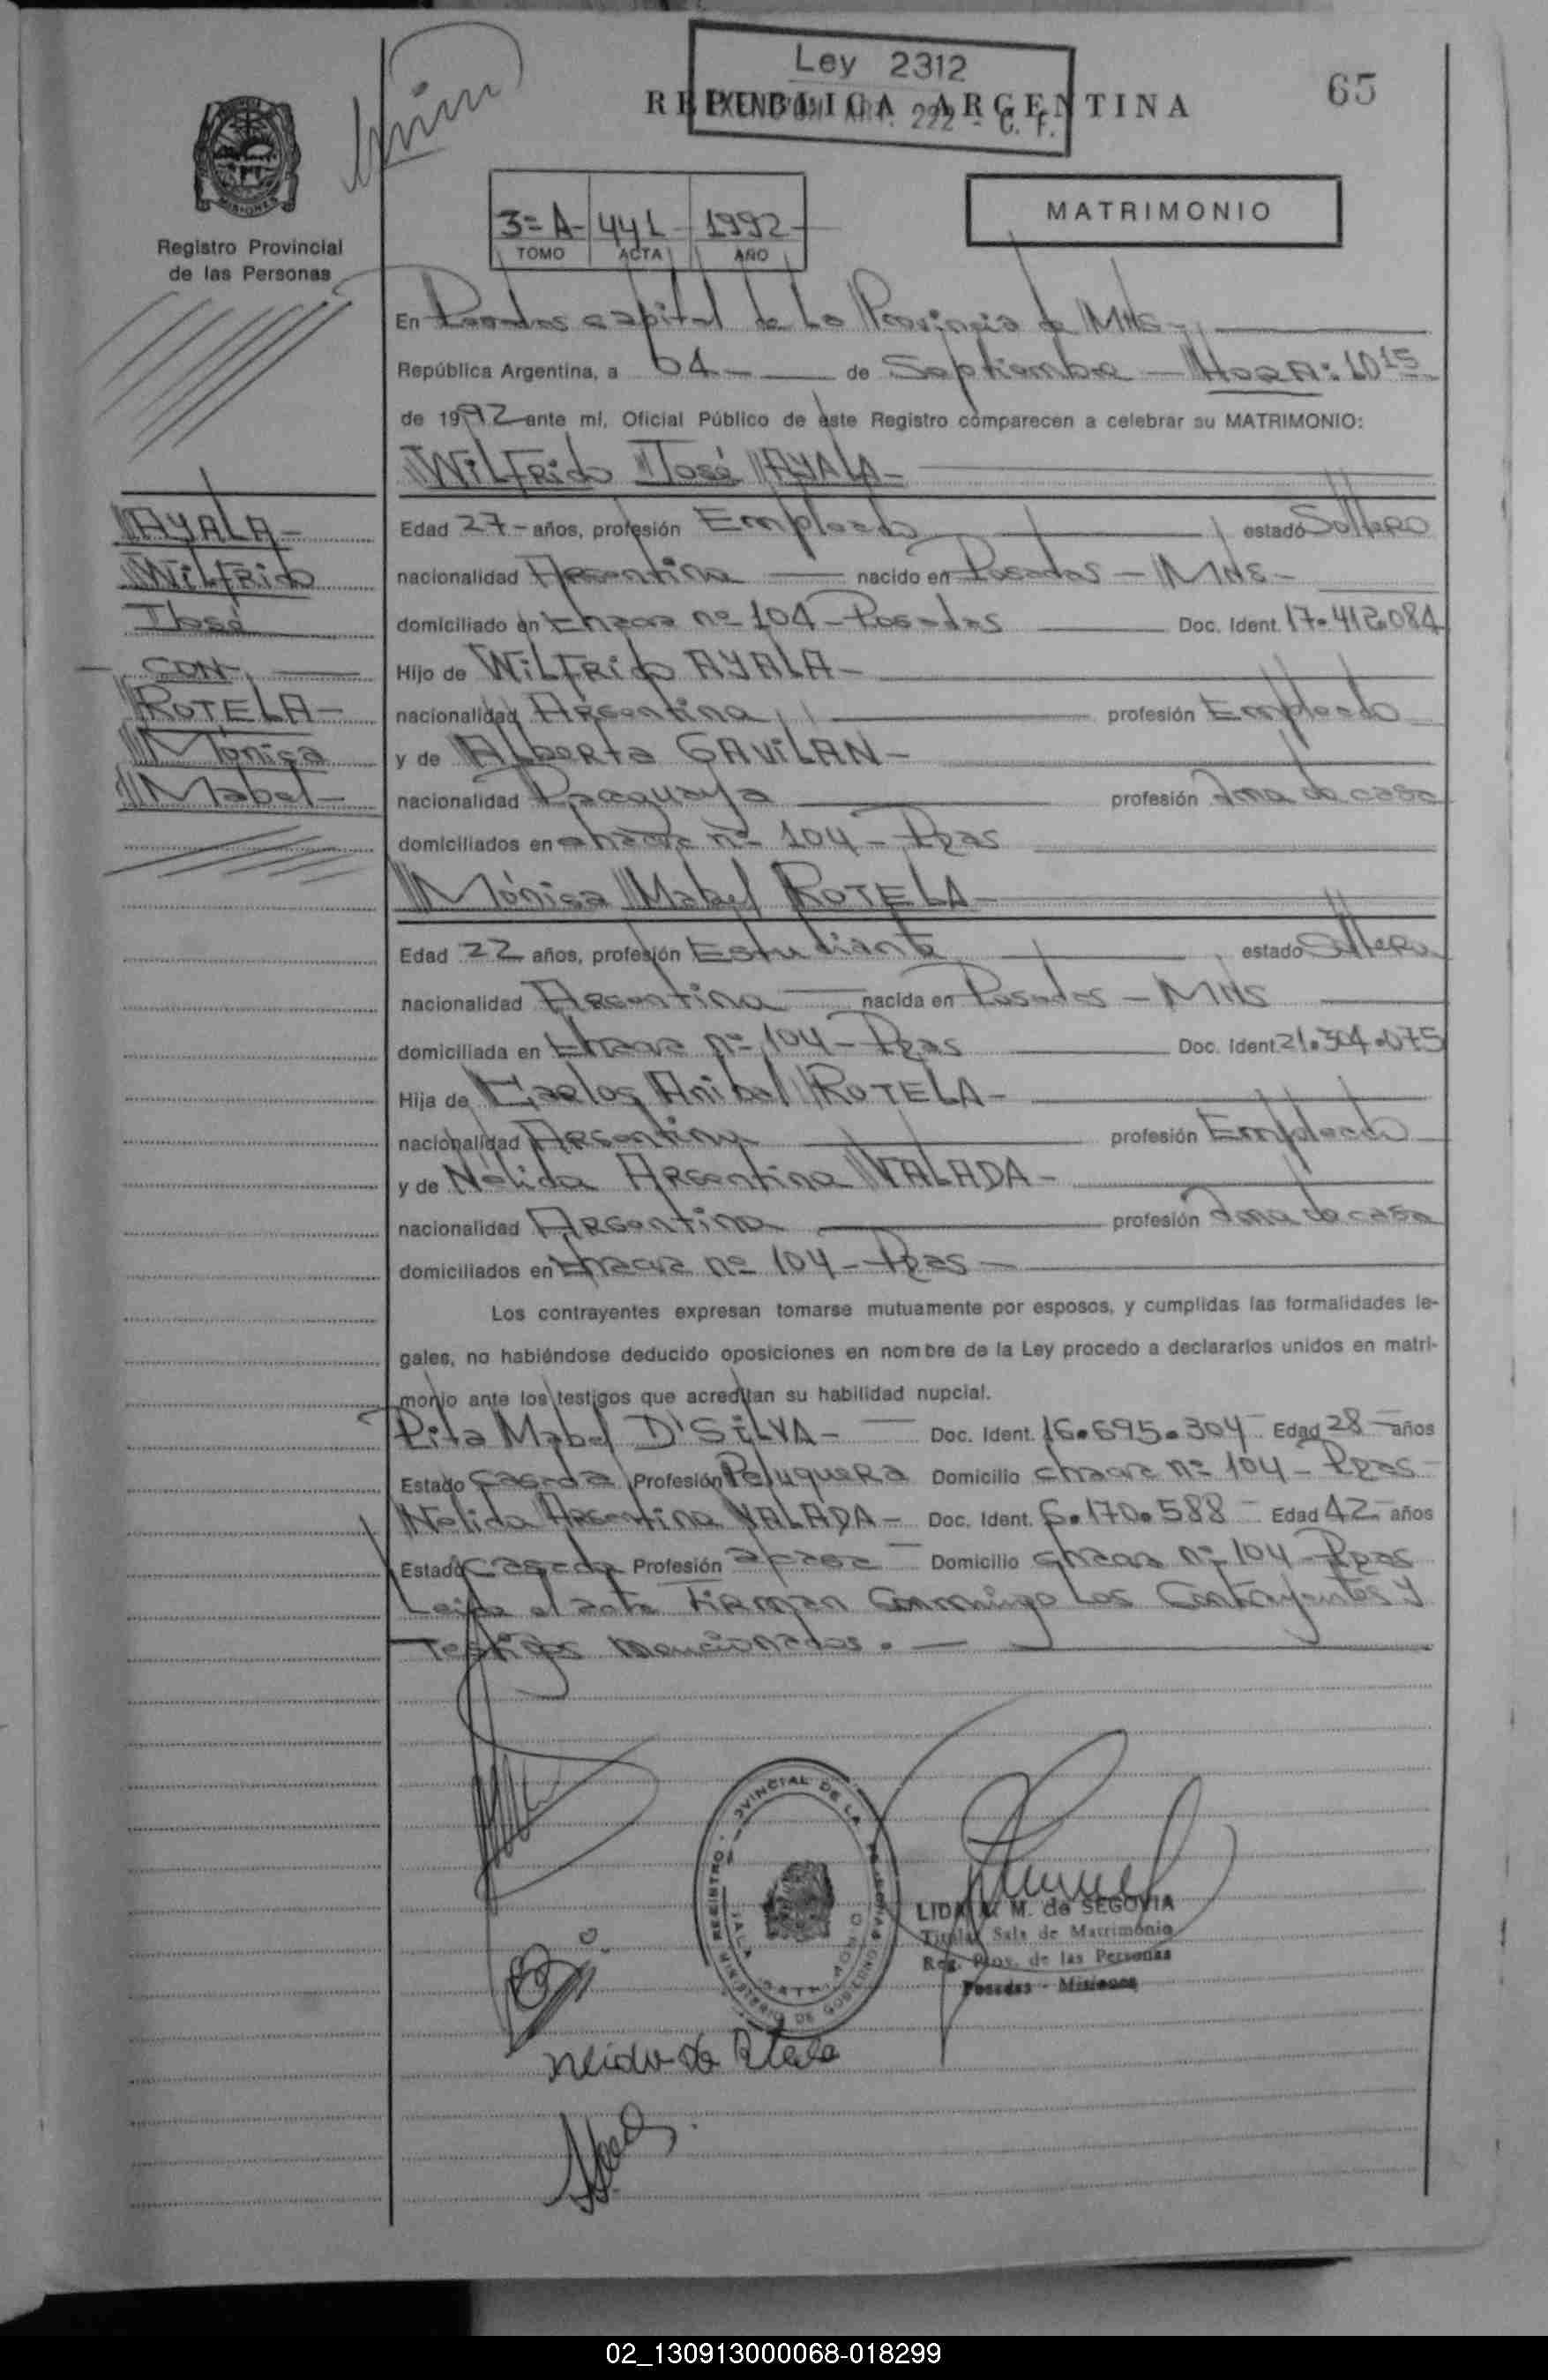 Ley 2312
REPUBLICA ARGENTINA
EXENCION ART. 222 - C. F.
65
MISIONES
Registro Provincial
de las Personas
3= A- 441- 1992-
TOMO ACTA AÑO
MATRIMONIO
En Posadas capital de La Provincia de Mnes-
República Argentina, a 04- de Septiembre - HORA: 10 15
de 1992 ante mí, Oficial Público de este Registro comparecen a celebrar su MATRIMONIO:
WiLFRido José AYALA-
AYALA-
WiLFRido
José
- CON -
ROTELA-
Mónica
Mabel-
Edad 27- años, profesión Empleado estado Soltero
nacionalidad Argentina nacido en Posadas - Mnes-
domiciliado en Chacra nº 104 - Posadas Doc. Ident. 17.412.084
Hijo de WiLFRido AYALA-
nacionalidad Argentina profesión Empleado
y de Alberta GAViLAN-
nacionalidad Paraguaya profesión Ama de casa
domiciliados en chacra nº 104 - Pdas
Mónica Mabel ROTELA-
Edad 22 años, profesión Estudiante estado Soltera
nacionalidad Argentina nacida en Posadas - Mnes
domiciliada en Chacra nº 104 - Pdas Doc. Ident. 21.304.075
Hija de Carlos Anibal ROTELA-
nacionalidad Argentina profesión Empleado
y de Nélida Argentina VALADA-
nacionalidad Argentina profesión Ama de casa
domiciliados en Chacra nº 104 - Pdas -
Los contrayentes expresan tomarse mutuamente por esposos, y cumplidas las formalidades le-
gales, no habiéndose deducido oposiciones en nombre de la Ley procedo a declararlos unidos en matri-
monio ante los testigos que acreditan su habilidad nupcial.
Rita Mabel D'SiLVA- Doc. Ident. 16.695.304- Edad 28 años
Estado Casada Profesión Peluquera Domicilio chacra nº 104 - Pdas
Nélida Argentina VALADA- Doc. Ident. 6.170.588 - Edad 42 años
Estado Casada Profesión Domicilio chacra nº 104 - Pdas
Leida el acta Firman Conmigo Los Contrayentes y
Testigos mencionados. -
REGISTRO PROVINCIAL DE LAS PERSONAS
MINISTERIO DE GOBIERNO
SALA MATRIMONIO
LIDA M. de SEGOVIA
Titular Sala de Matrimonio
Reg. Prov. de las Personas
Posadas - Misiones
Nelida de Rotela
02_130913000068-018299